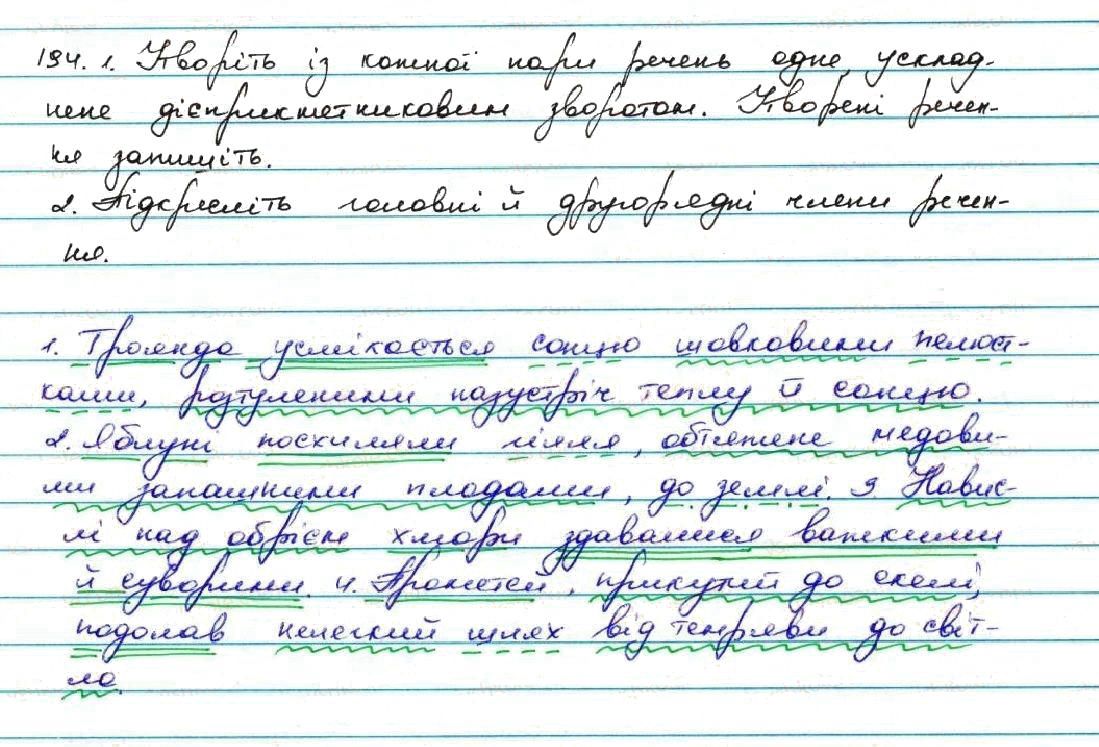 194. 1. Утворіть із кожної пари речень одне, усклад-
нене дієприкметниковим зворотом. Утворені речен-
ня запишіть.
2. Підкресліть головні й другорядні члени речен-
ня.
1. Троянда усміхається сонцю шовковими пелюст-
ками, розтуленими назустріч теплу й сонцю.
2. Яблуні посхиляли гілля, обтяжене медови-
ми запашними плодами, до землі. 3 Навис-
лі над обрієм хмари здавалися важкими
й суворими. 4. Прометей, прикутий до скелі,
подолав нелегкий шлях від темряви до світ-
ла.